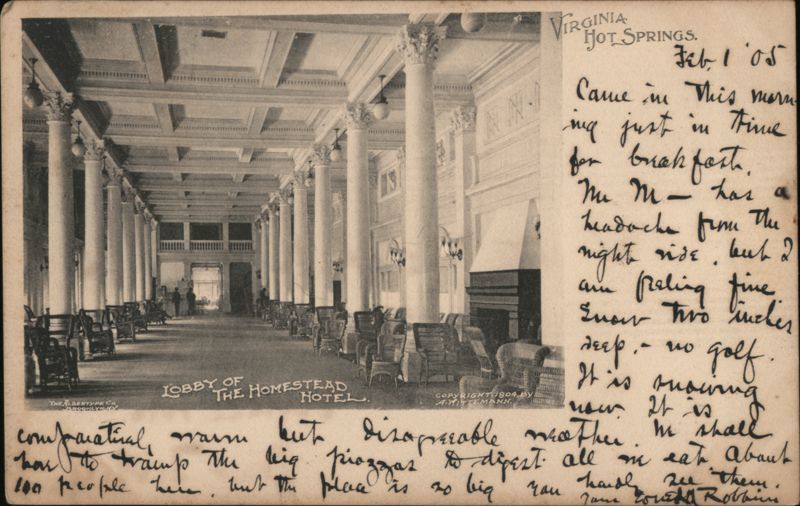 VIRGINIA
HOT SPRINGS.
Feb, 1 '05
Came in this morn-
ing just in time
for breakfast.
Mr M— has a
headache from the
night ride, but I
am feeling fine
Snow two inches
deep, - no golf.
It is snowing
now. It is
comparatively warm but disagreeable weather. We shall
have to tramp the big piazzas to digest all we eat About
100 people here, but the place is so big you hardly see them.
Robbins
LOBBY OF
THE HOMESTEAD
HOTEL.
THE ALBERTYPE CO.
BROOKLYN, N.Y.
COPYRIGHT 1904, BY
A. WITTEMANN.